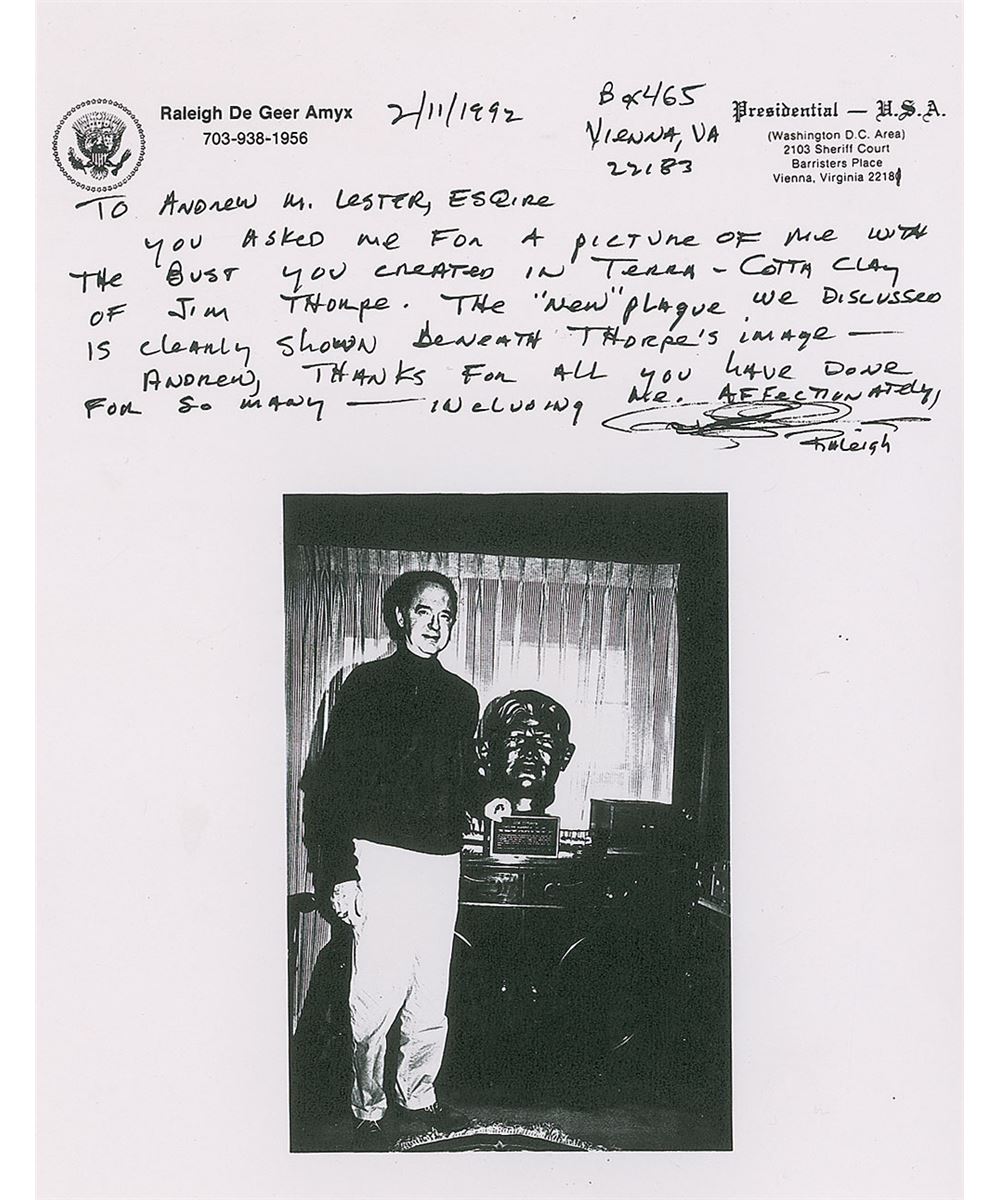 Raleigh De Geer Amyx
703-938-1956
2/11/1992
Box 465
VIENNA, VA
22183
Presidential — U.S.A.
(Washington D.C. Area)
2103 Sheriff Court
Barristers Place
Vienna, Virginia 2218
TO ANDREW M. LESTER, ESQIRE
YOU ASKED ME FOR A PICTURE OF ME WITH
THE BUST YOU CREATED IN TERRA-COTTA CLAY
OF JIM THORPE. THE "NEW" PLAQUE WE DISCUSSED
IS CLEARLY SHOWN BENEATH THORPE'S IMAGE —
ANDREW, THANKS FOR ALL YOU HAVE DONE
FOR SO MANY — INCLUDING ME. AFFECTIONATELY,
Raleigh